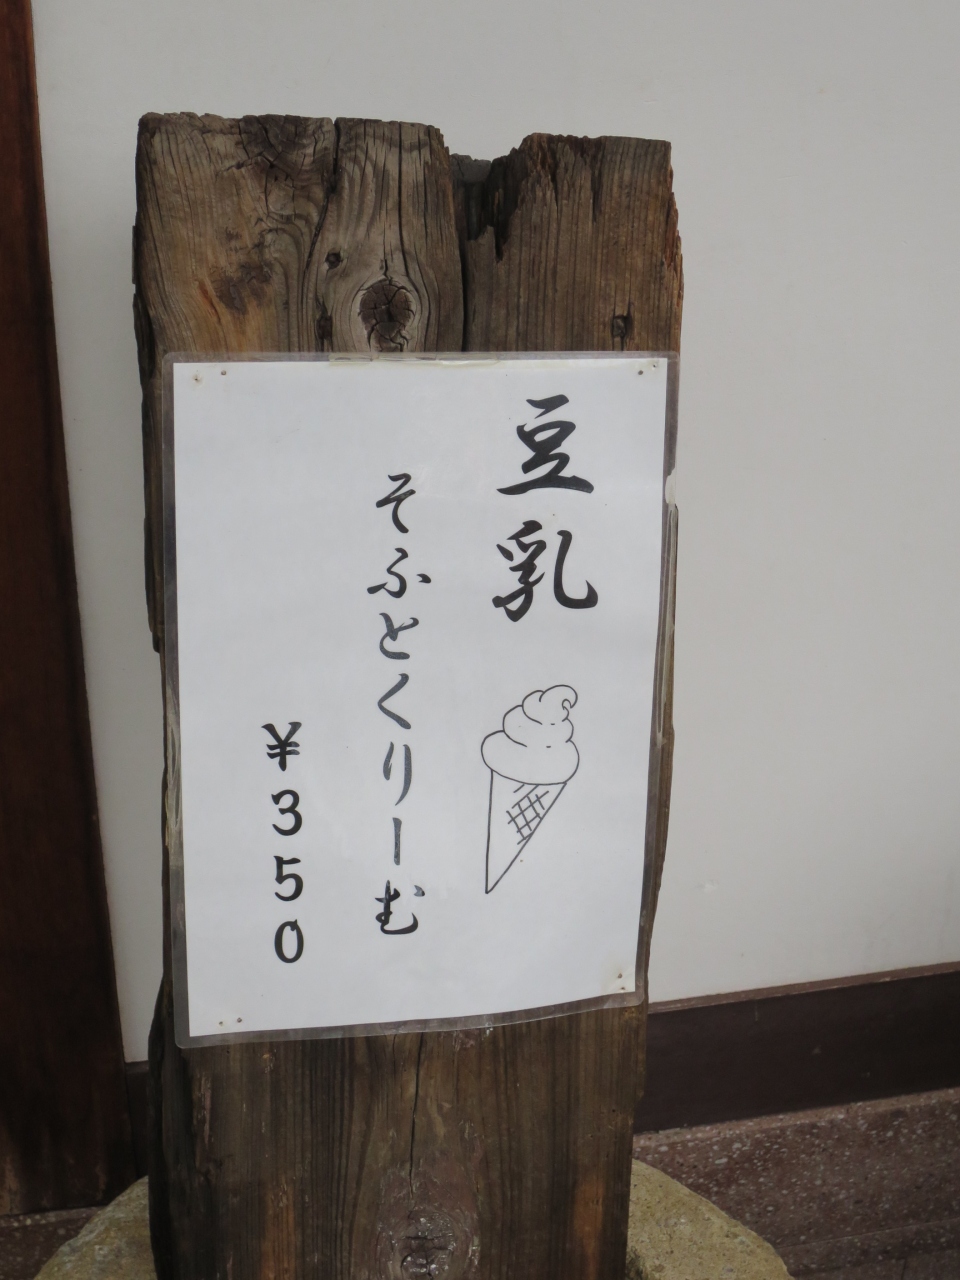 豆乳
そふとくりーむ
¥350